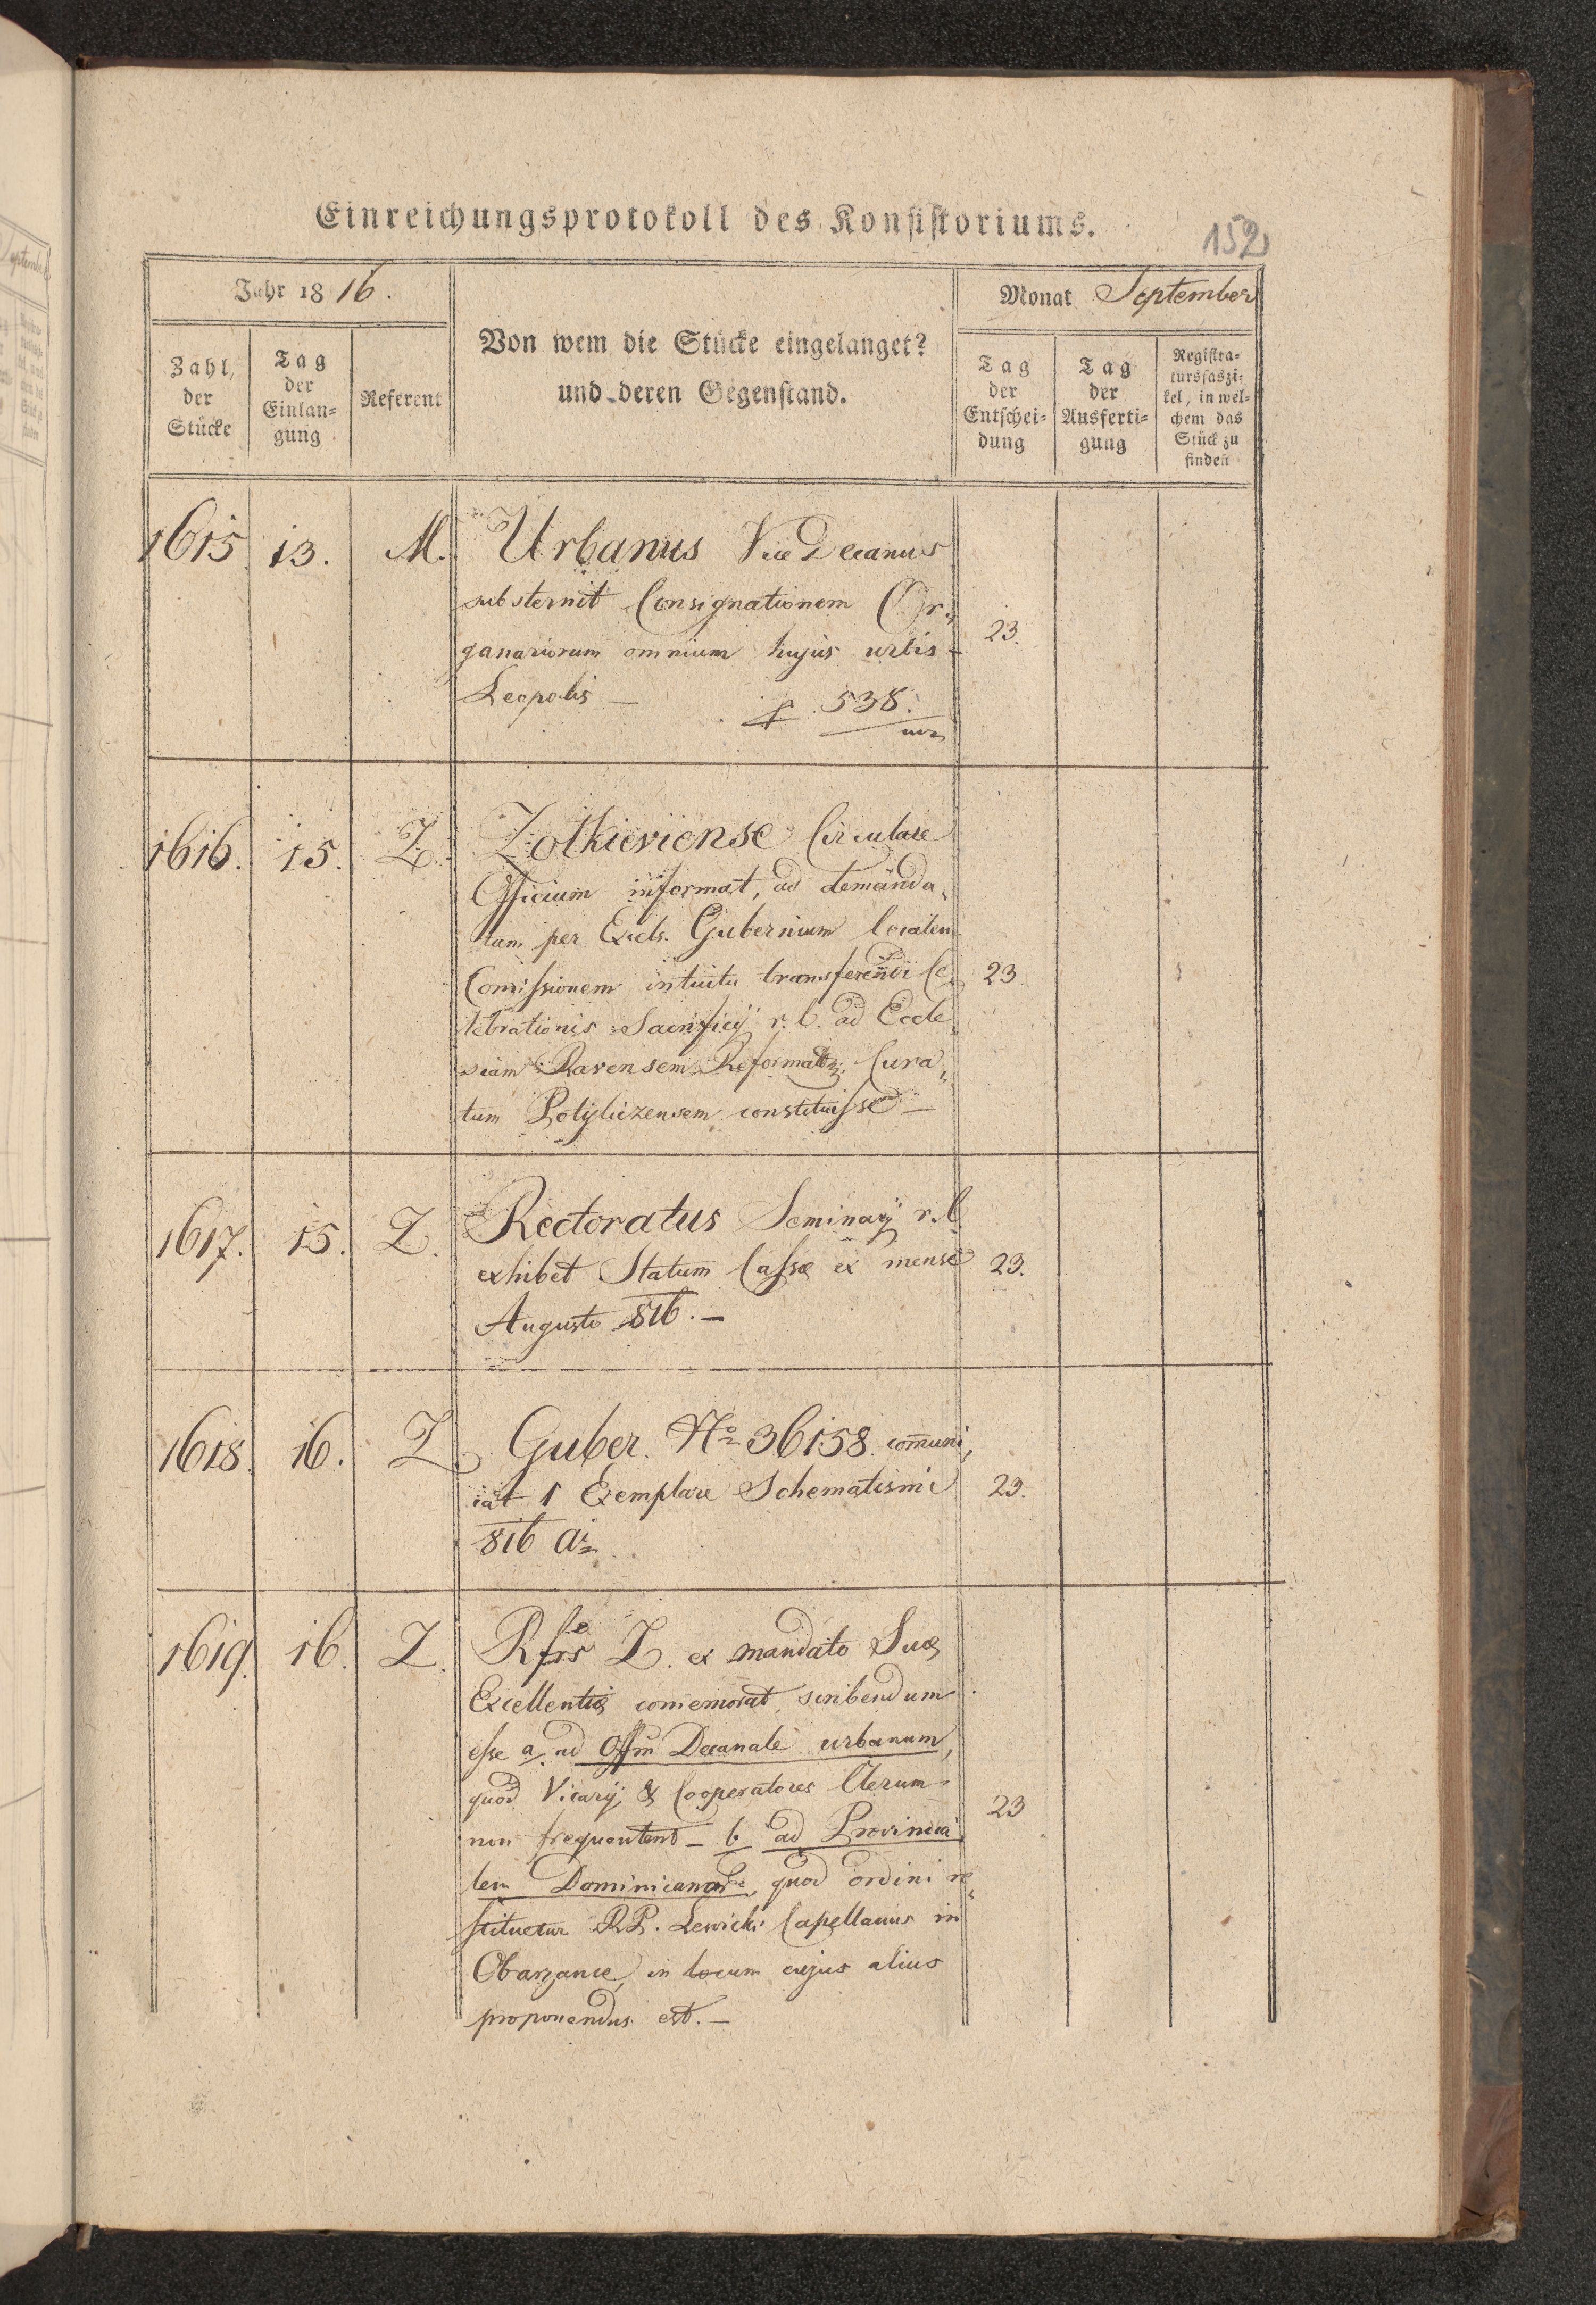 Einreichungsprotokoll des Konsistoriums.
152
Jahr 1816.
Von wem die Stücke eingelanget?
und deren Gegenstand.
Monat September
Zahl
der
Stücke
Tag
der
Einlan=
gung
Referent
Tag
der
Entschei=
dung
Tag
der
Ausferti=
gung
Registra=
tursfaszi=
kel, in wel=
chem das
Stück zu
finden
1615 13. M. Urbanus Vice Decanus
substernit Consignationem Or„
ganariorum omnium hujus urbis 23.
Leopolis — 538.
1616. 15. Z. Zolkieviense Circulare
Officium informat, ad demanda„
tam per Excels. Gubernium localem
Comissionem intuitu transferendi Ce„ 23
lebrationis Sacrificij r. l. ad Eccle„
siam Ravensem Cura„
tum Potyliczensem constituisse —
1617. 15. Z. Rectoratus Seminarij r. l.
exhibet Statum Cassæ ex mense 23.
Augusto 816. —
1618. 16. Z. Guber. No 36158. comuni„
cat 1 Exemplare Schematismi 23.
816 ai
1619. 16. Z. Z. ex mandato Suæ
Excellentiæ comemorat, scribendum
esse a. ad Offm Decanale urbanum,
quod Vicarij & Cooperatores
non frequentent — b ad Provincia„ 23
lem quod ordini re„
stituetur RP. Lewicki Capellanus in
in locum cujus alius
proponendus est. —